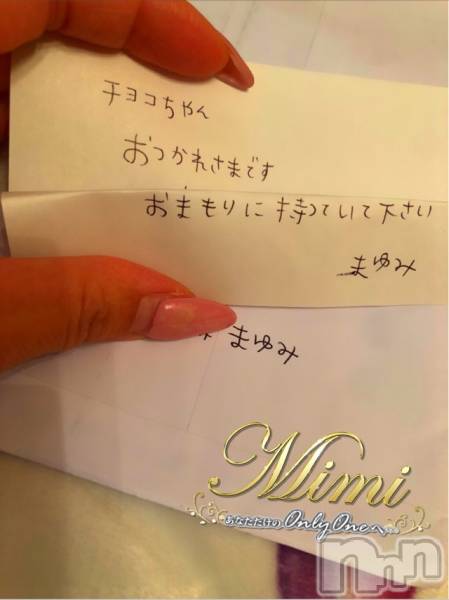 チョコちゃん
おつかれさまです
おまもりに持っていて下さい
まゆみ
まゆみ
Mimi
あなただけのOnlyOneへ
nmn